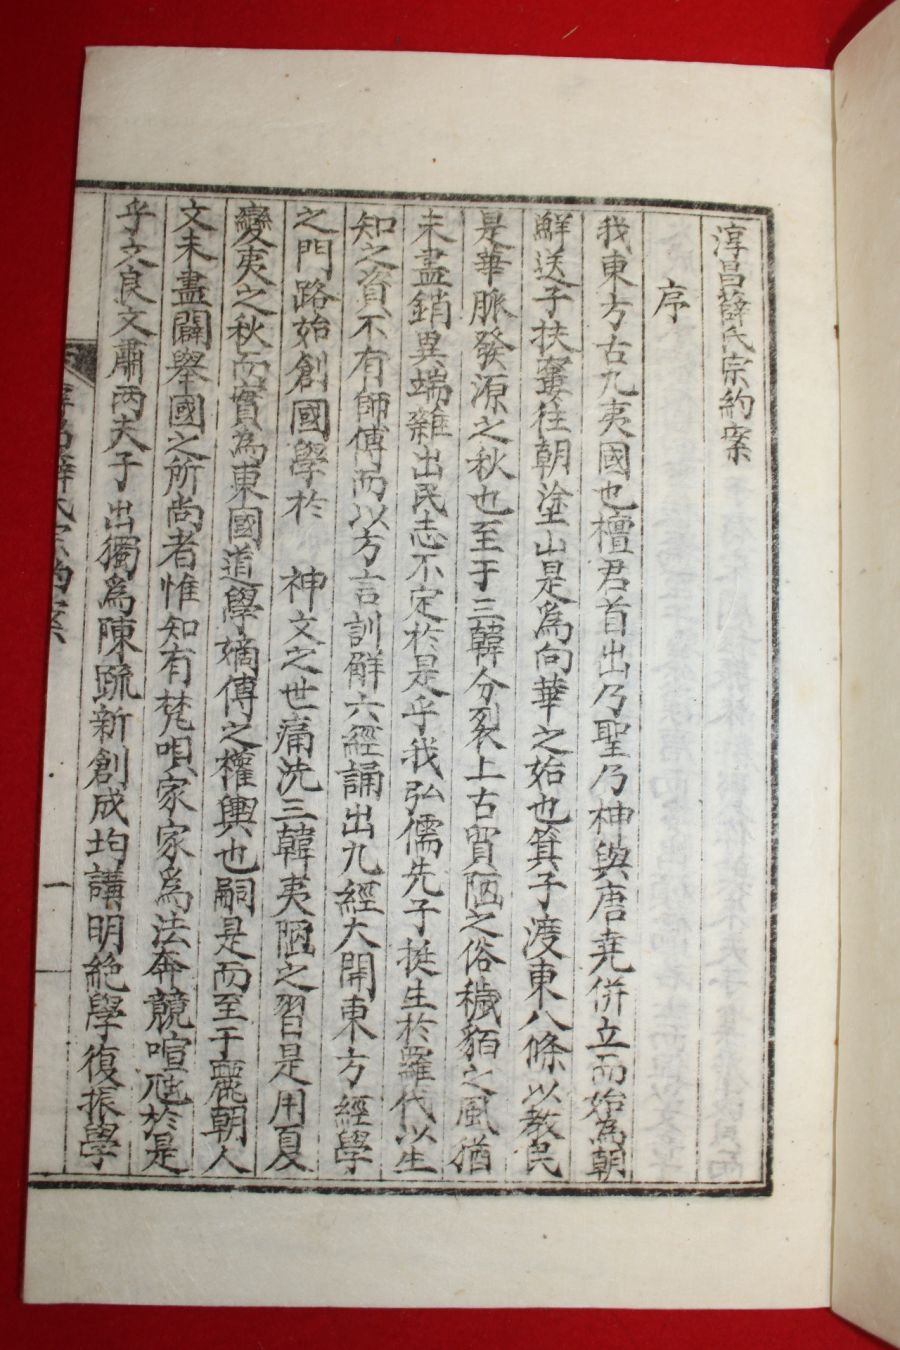 淳昌薛氏宗約案
序
我東方古九夷國也檀君首出乃聖乃神與唐堯併立而始為朝
鮮送子扶婁往朝塗山是為向華之始也箕子渡東八條以教民
是華脈發源之秋也至于三韓分裂上古貿陋之俗穢貊之風猶
未盡銷異端雜出民志不定於是乎我弘儒先子挺生於羅代以生
知之資不有師傅而以方言訓解六經誦出九經大開東方經學
之門路始創國學於 神文之世痛洗三韓夷陋之習是用夏
變夷之秋而實為東國道學嫡傳之權輿也嗣是而至于麗朝人
文未盡闢舉國之所尚者惟知有梵唄家家為法奔競喧於是
乎文良文肅两夫子出獨為陳疏新創成均講明絶學復振學
淳昌薛氏宗約案
一